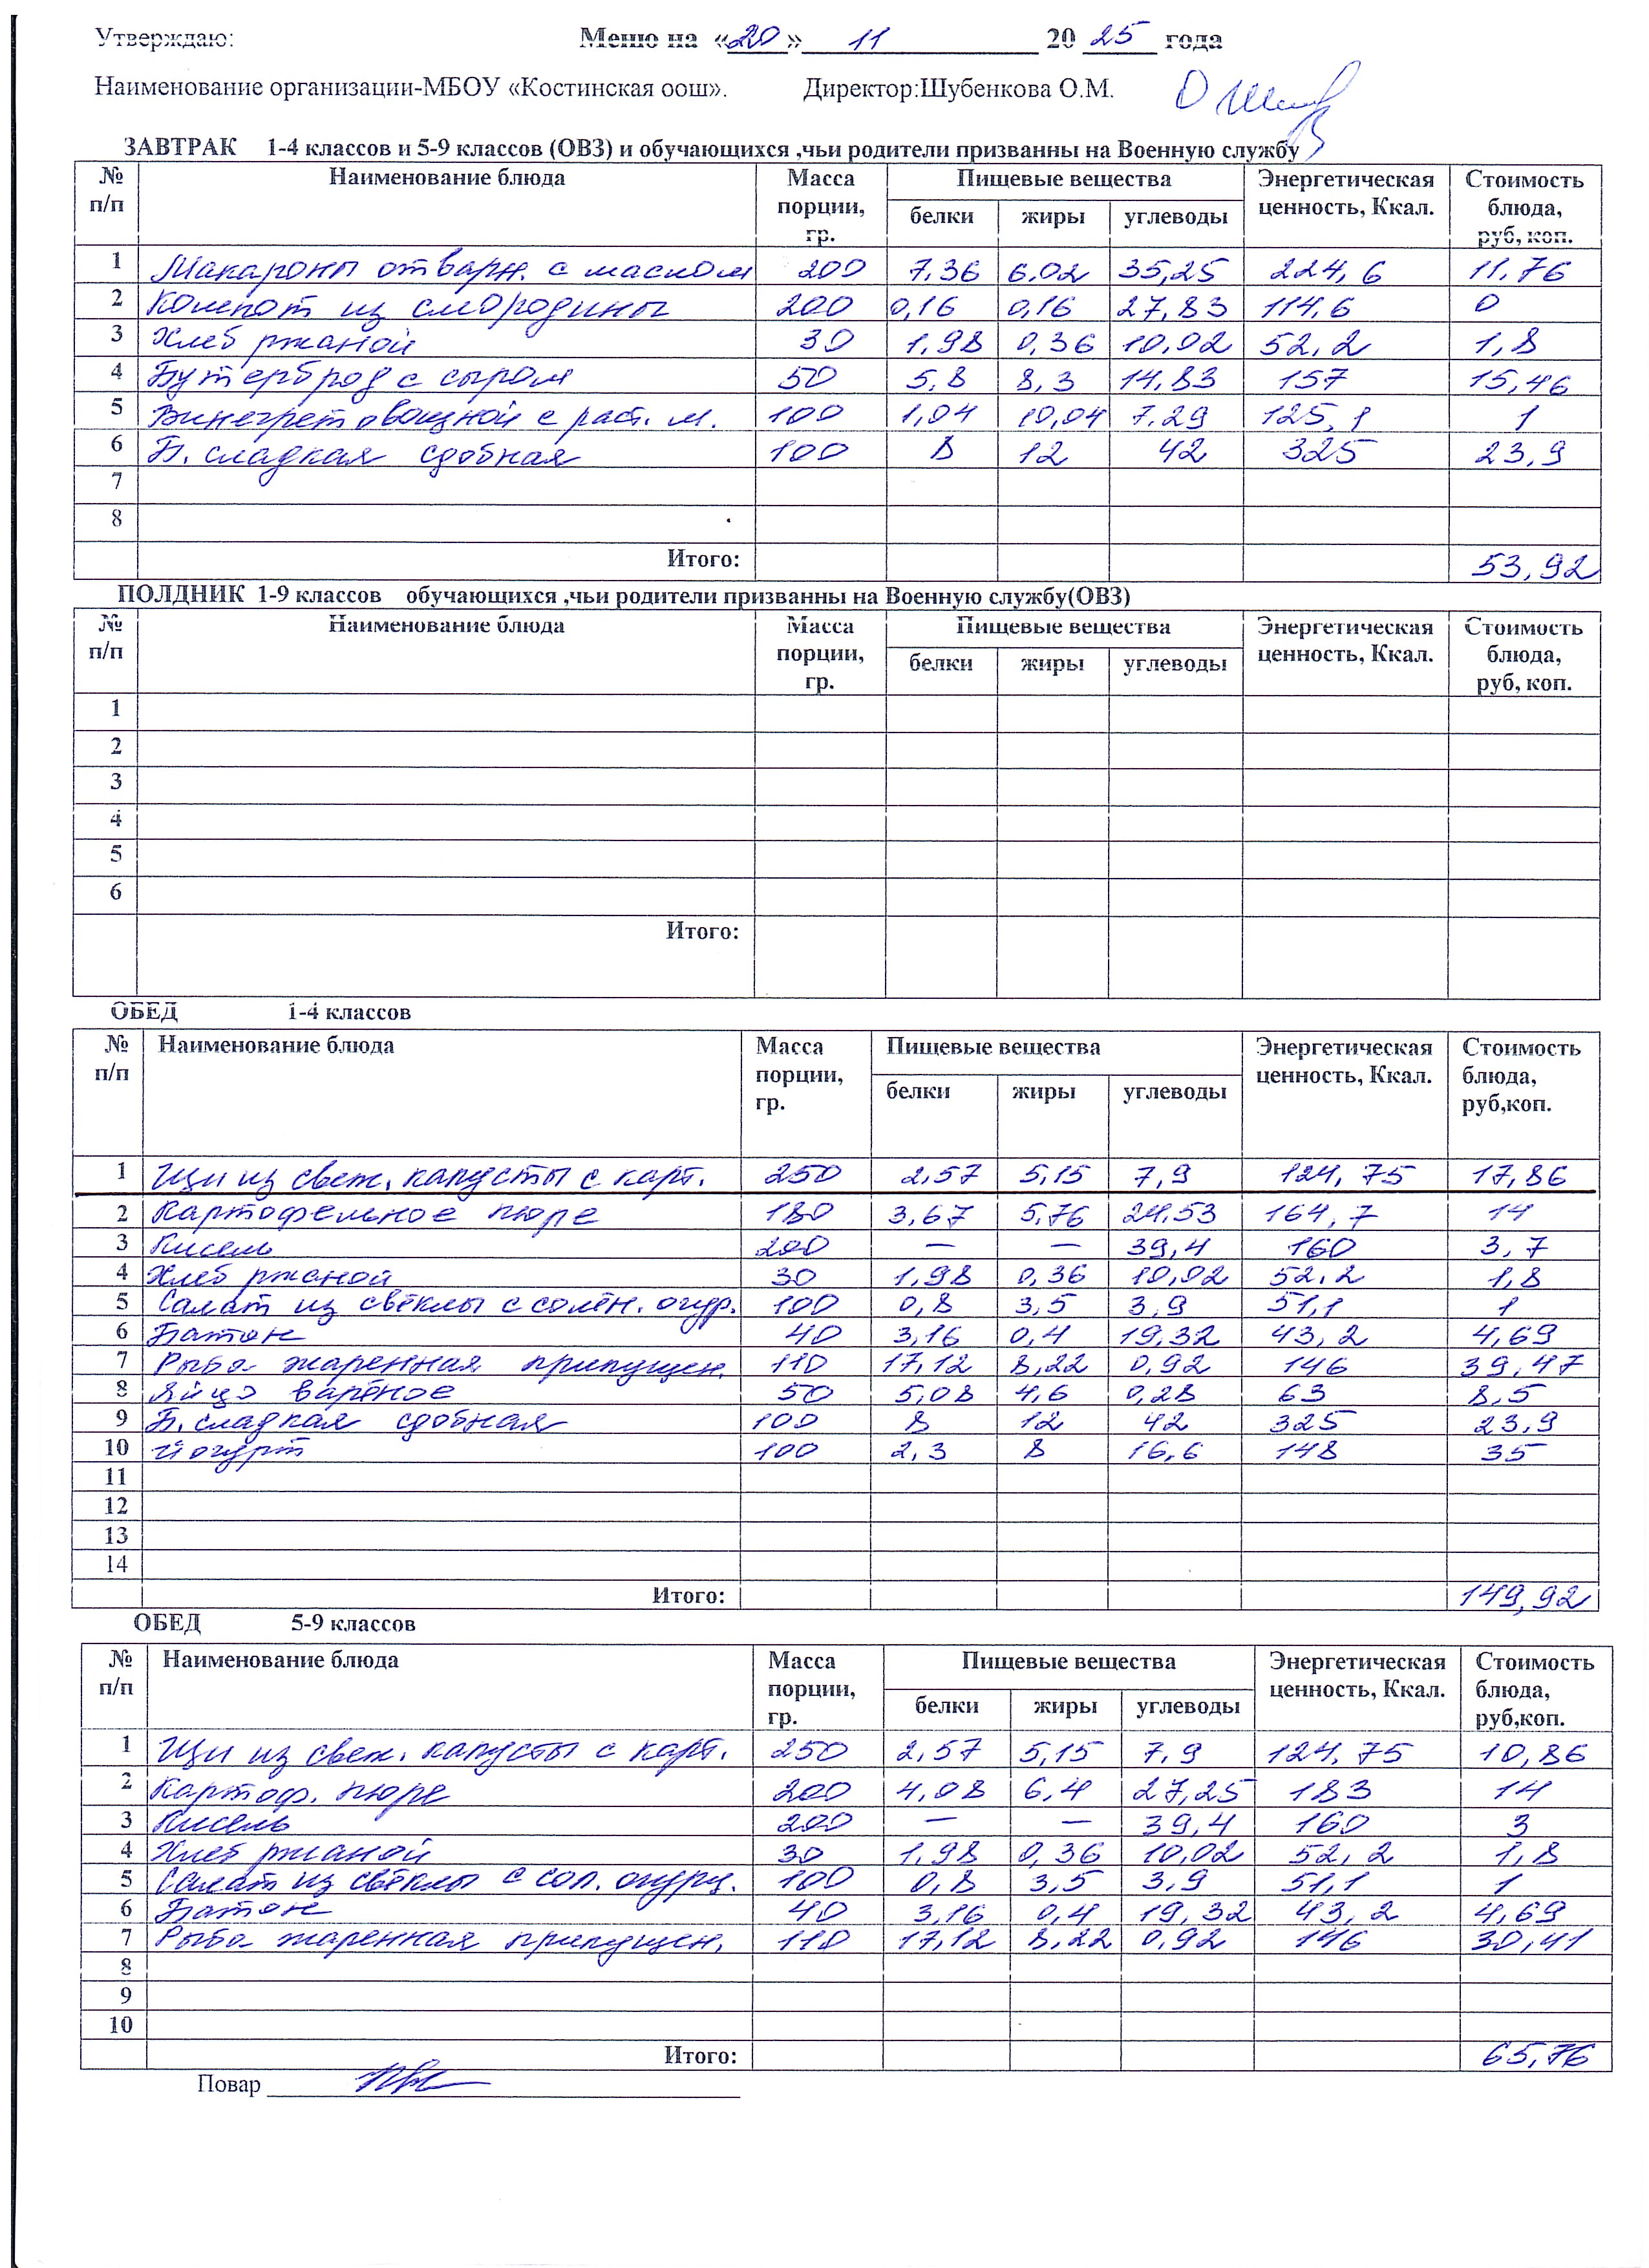 Утверждаю: Меню на «20» 11 2025 года
Наименование организации-МБОУ «Костинская оош». Директор:Шубенкова О.М.
ЗАВТРАК 1-4 классов и 5-9 классов (ОВЗ) и обучающихся ,чьи родители призванны на Военную службу
№ п/п Наименование блюда Масса порции, гр. Пищевые вещества Энергетическая ценность, Ккал. Стоимость блюда, руб, коп.
белки жиры углеводы
1 Макароны отварн. с маслом 200 7,36 6.02 35,25 224,6 11,76
2 Компот из смородины 200 0,16 0,16 27,83 114,6 0
3 Хлеб ржаной 30 1,98 0,36 10,02 52,2 1,8
4 Бутерброд с сыром 50 5,8 8,3 14,83 157 15,46
5 Винегрет овощной с раст. м. 100 1,04 10,04 7.29 125,1 1
6 Б. сладкая сдобная 100 8 12 42 325 23,9
7
8
Итого: 53,92
ПОЛДНИК 1-9 классов обучающихся ,чьи родители призванны на Военную службу(ОВЗ)
№ п/п Наименование блюда Масса порции, гр. Пищевые вещества Энергетическая ценность, Ккал. Стоимость блюда, руб, коп.
белки жиры углеводы
1
2
3
4
5
6
Итого:
ОБЕД 1-4 классов
№ п/п Наименование блюда Масса порции, гр. Пищевые вещества Энергетическая ценность, Ккал. Стоимость блюда, руб,коп.
белки жиры углеводы
1 Щи из свеж. капусты с карт. 250 2,57 5,15 7,9 124,75 17,86
2 Картофельное пюре 180 3,67 5,76 24,53 164,7 14
3 Кисель 200 — — 39,4 160 3,7
4 Хлеб ржаной 30 1,98 0,36 10,02 52,2 1,8
5 Салат из свёклы с солён. огур. 100 0,8 3,5 3,9 51,1 1
6 Батон 40 3,16 0,4 19,32 43,2 4,69
7 Рыба жаренная припущен. 110 17,12 8,22 0,92 146 39,47
8 Яйцо варёное 50 5,08 4,6 0,28 63 8,5
9 Б. сладкая сдобная 100 8 12 42 325 23,9
10 Йогурт 100 2,3 8 16,6 148 35
11
12
13
14
Итого: 149,92
ОБЕД 5-9 классов
№ п/п Наименование блюда Масса порции, гр. Пищевые вещества Энергетическая ценность, Ккал. Стоимость блюда, руб,коп.
белки жиры углеводы
1 Щи из свеж. капусты с карт. 250 2,57 5,15 7,9 124,75 10,86
2 Картоф. пюре 200 4,08 6,4 27,25 183 14
3 Кисель 200 — — 39,4 160 3
4 Хлеб ржаной 30 1,98 0,36 10,02 52,2 1,8
5 Салат из свёклы с сол. огурц. 100 0,8 3,5 3,9 51,1 1
6 Батон 40 3,16 0,4 19,32 43,2 4,69
7 Рыба жаренная припущен. 110 17,12 8,22 0,92 146 30,41
8
9
10
Итого: 65,76
Повар